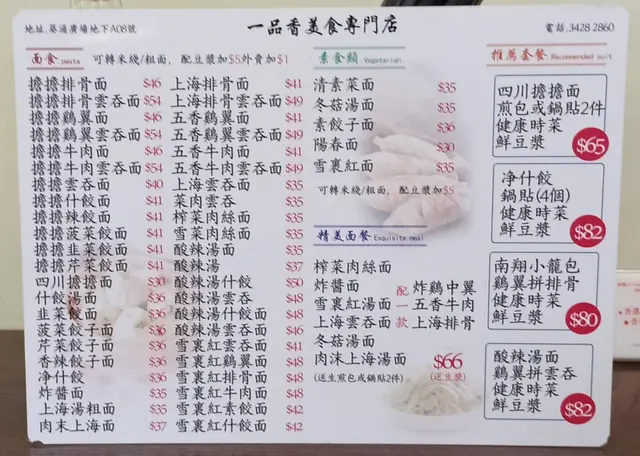 地址.葵涌廣場地下A08號
一品香美食專門店
電話.3428 2860
面食 pasta 可轉米綫/粗面，配豆漿加$5外賣加$1
擔擔排骨面 $46
擔擔排骨雲吞面 $54
擔擔鷄翼面 $46
擔擔鷄翼雲吞面 $54
擔擔牛肉面 $46
擔擔牛肉雲吞面 $54
擔擔雲吞面 $40
擔擔什餃面 $41
擔擔辣餃面 $41
擔擔菠菜餃面 $41
擔擔韭菜餃面 $41
擔擔芹菜餃面 $41
四川擔擔面 $30
什餃湯面 $36
韭菜餃面 $36
菠菜餃子面 $36
芹菜餃子面 $36
香辣餃子面 $36
净什餃 $36
炸醬面 $35
上海湯粗面 $35
肉末上海面 $37
上海排骨面 $41
上海排骨雲吞面 $49
五香鷄翼面 $41
五香鷄翼雲吞面 $49
五香牛肉面 $41
五香牛肉雲吞面 $49
上海雲吞面 $35
菜肉雲吞 $35
榨菜肉絲面 $35
雪菜肉絲面 $35
酸辣湯面 $35
酸辣湯 $37
酸辣湯什餃 $50
酸辣湯雲吞 $48
酸辣湯餃子 $48
酸辣湯雲吞面 $46
雪裏紅雲吞面 $41
雪裏紅鷄翼面 $48
雪裏紅排骨面 $48
雪裏紅牛肉面 $48
雪裏紅素餃面 $42
雪裏紅什餃面 $42
素食類 Vegetarian
清素菜面 $35
冬菇湯面 $35
素餃子面 $36
陽春面 $30
雪裏紅面 $35
可轉米綫/粗面，配豆漿加$5
精美面餐 Exquisite meal
榨菜肉絲面
炸醬面
雪裏紅湯面
上海雲吞面
冬菇湯面
肉沫上海湯面
(送生煎包或鍋貼2件)
配一款
炸鷄中翼
五香牛肉
上海排骨
$66
(送豆漿)
推薦套餐 Recommended suit
四川擔擔面
煎包或鍋貼2件
健康時菜
鮮豆漿
$65
净什餃
鍋貼(4個)
健康時菜
鮮豆漿
$82
南翔小籠包
鷄翼拼排骨
健康時菜
鮮豆漿
$80
酸辣湯面
鷄翼拼雲吞
健康時菜
鮮豆漿
$82